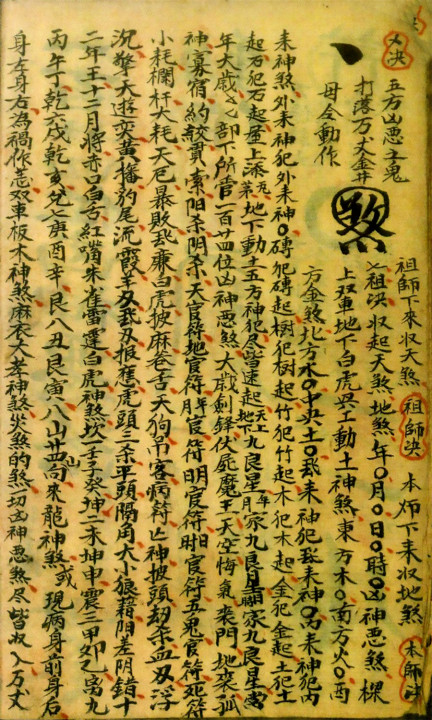 祖師下來收天煞 祖師決 本師下來收地煞 本師決
祖決收起天煞地煞年〇月〇日〇時〇凶神悪煞樑
上双車地下白虎兵工動土神煞東方木〇南方火〇西
方金煞北方水〇中央土〇我来神犯我来神〇丙来神犯丙
煞
決
五方凶悪土鬼
打落万丈金井
毋令動作
来神煞外来神犯外来神〇磚犯磚起樹犯樹起竹犯竹起木犯木起金犯金起土犯土
起石犯石起屋上添瓦地下動土五方神犯尽皆速起天上地下九良星年月家九良星
年大歳部下所管一百廿四位凶神悪煞大歳劍鋒伏屍魔王天空悔氣喪門地喪孤
神寡宿約絞貫索阳杀阴杀天官符地官符年官符月官符日官符時官符五鬼官符死符
小耗欄杆大耗天厄暴敗廉白虎披麻卷舌天狗吊客病符亡神披頭劫杀血刃浮
沉擎天遊奕黄播豹尾流霞羊刃飛刃报應虎頭三杀平頭隔角大小狼藉阳差阴錯十
二年王十二月將赤口白舌紅嘴朱雀雷霆白虎神煞坎一壬子癸坤二未坤申震三甲卯乙离九
丙午丁乾六戌乾亥兌七庚酉辛艮八丑艮寅八山廿四向来龍神煞或現病身前身后
身左身右為禍作恙双車板木神煞麻衣大孝神煞火煞的煞一切凶神悪煞尽皆收入万丈